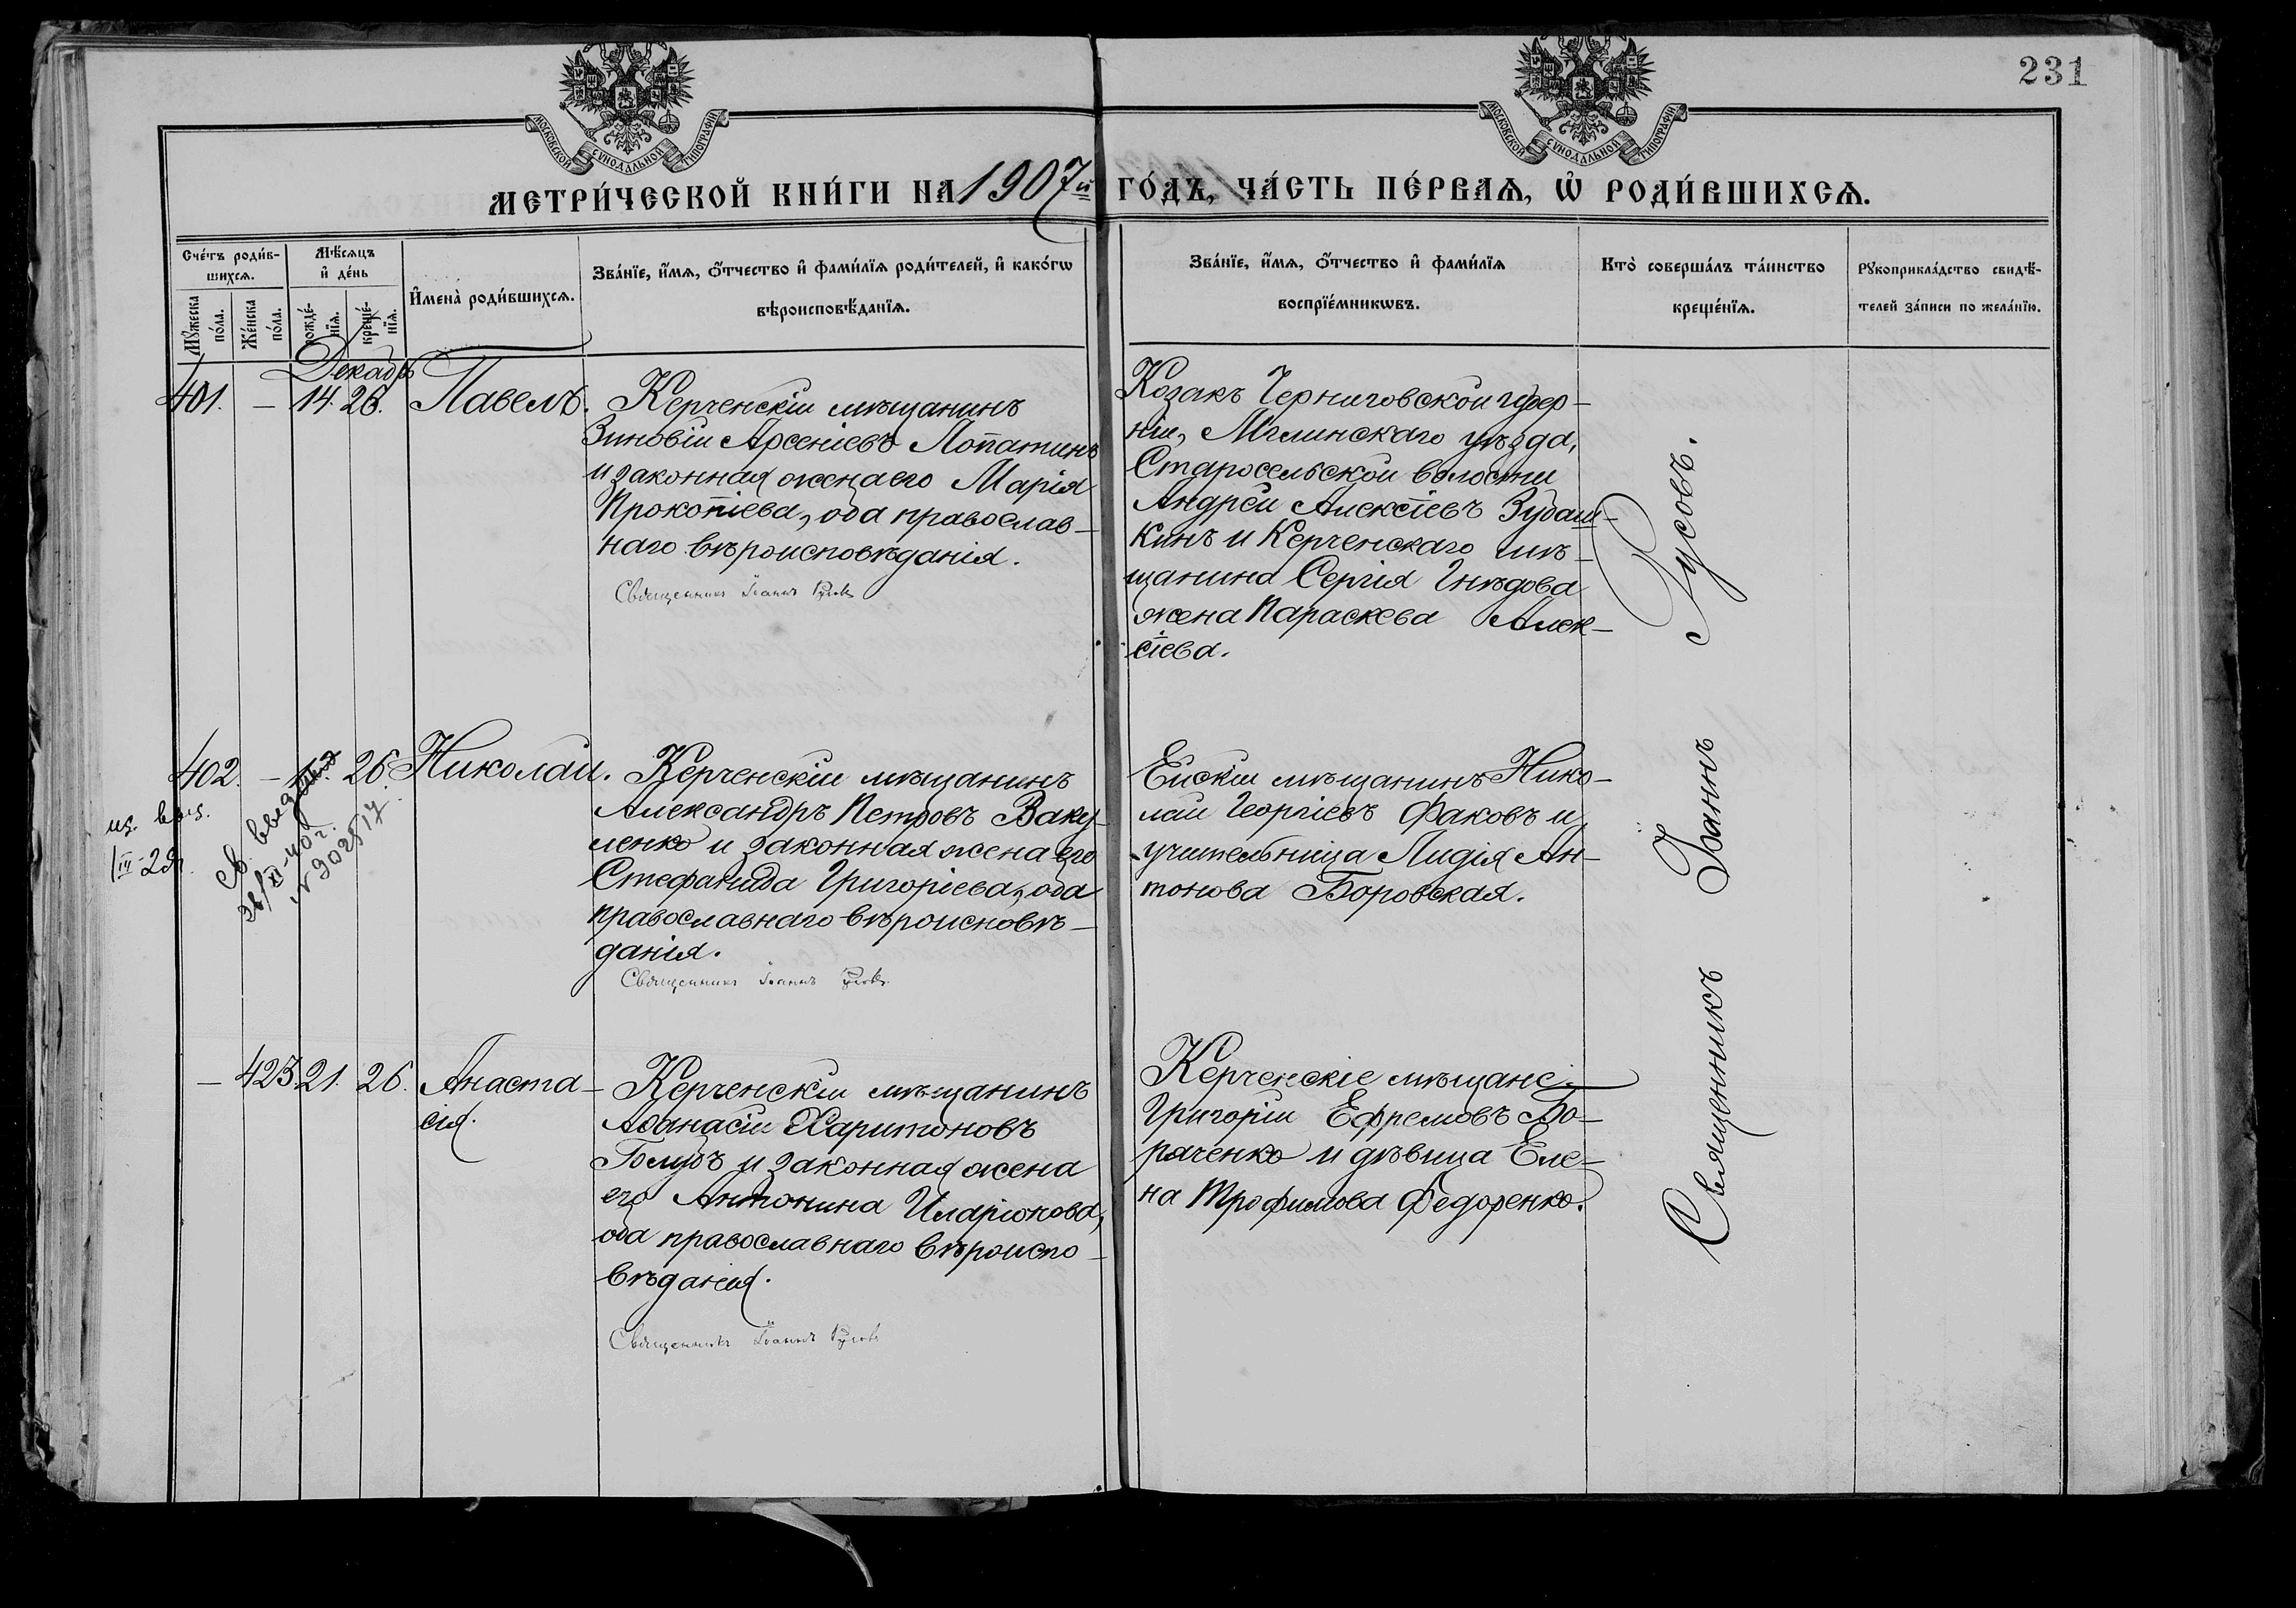 231
МОСКОВСКОЙ СѴНОДАЛЬНОЙ ТИПОГРАФІИ
МОСКОВСКОЙ СѴНОДАЛЬНОЙ ТИПОГРАФІИ
МЕТРИ́ЧЕСКОЙ КНИ́ГИ НА 1907й ГО́ДЪ, ЧА́СТЬ ПЕ́РВАѦ, Ѡ҆ РОДИ́ВШИХСѦ.
Сче́тъ роди́в-
шихсѧ.
Мѣ́сѧцъ
и҆ де́нь
Мꙋ́жеска
по́ла.
Же́нска
по́ла.
рожде́-
нїѧ.
креще́-
нїѧ.
И҆мена̀ роди́вшихсѧ.
Зва́нїе, и҆́мѧ, ѻ҆́тчество и҆ фами́лїѧ роди́телей, и҆ како́гѡ
вѣроисповѣ́данїѧ.
Зва́нїе, и҆́мѧ, ѻ҆́тчество и҆ фами́лїѧ
воспрїе́мникѡвъ.
Кто̀ соверша́лъ та́инство
креще́нїѧ.
Рꙋкоприкла́дство свидѣ́-
телей за́писи по жела́нїю.
Декабрь
401. — 14. 26. Павелъ.
Керченскій мѣщанинъ
Зиновій Арсеніевъ Лопатинъ
и законная жена его Марія
Прокопіева, оба православ-
наго вѣроисповѣданія.
Священникъ Іоаннъ Русовъ
Козакъ Черниговской губер-
ніи, Мглинскаго уѣзда,
Старосельской волости
Андрей Алексѣевъ Зубаш-
кинъ и Керченскаго мѣ-
щанина Сергія Гнѣдова
жена Параскева Алек-
сѣева.
402. — 26. Николай.
Керченскій мѣщанинъ
Александръ Петровъ Ваку-
ленко и законная жена его
Стефанида Григоріева, оба
православнаго вѣроисповѣ-
данія.
Священникъ Іоаннъ Русовъ
Ейскій мѣщанинъ Нико-
лай Георгіевъ Факовъ и
учительница Лидія Ан-
тонова Боровская.
св. выдано
XI-40 г.
№ 302517
— 423. 21. 26. Анаста-
сія.
Керченскій мѣщанинъ
Аѳанасій Харитоновъ
Голубъ и законная жена
его Антонина Иларіонова,
оба православнаго вѣроиспо-
вѣданія.
Священникъ Іоаннъ Русовъ
Керченскіе мѣщане:
Григорій Ефремовъ Бо-
раченко и дѣвица Еле-
на Трофимова Федоренко.
Священникъ Іоаннъ Русовъ.